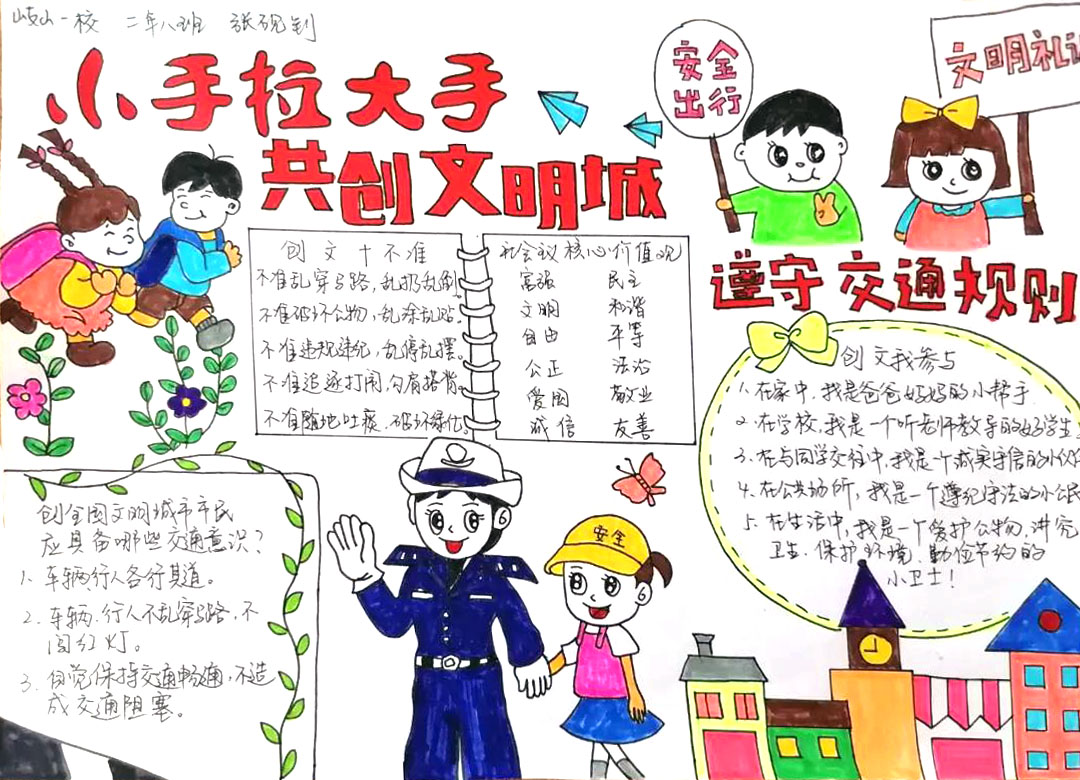 岐山一校 二年八班 张砚钊
小手拉大手
共创文明城
安全
出行
文明礼
遵守交通规则
创文十不准
不准乱穿马路,乱扔乱倒。
不准破坏公物,乱涂乱贴。
不准违规违纪,乱停乱摆。
不准追逐打闹,勾肩搭背。
不准随地吐痰,破坏绿化。
社会主义核心价值观
富强 民主
文明 和谐
自由 平等
公正 法治
爱国 敬业
诚信 友善
创文我参与
1、在家中,我是爸爸妈妈的小帮手
2、在学校,我是一个听老师教导的好学生
3、在与同学交往中,我是一个诚实守信的小伙伴
4、在公共场所,我是一个遵纪守法的小公民
5、在生活中,我是一个爱护公物,讲究
卫生、保护环境、勤俭节约的
小卫士!
创全国文明城市市民
应具备哪些交通意识?
1、车辆行人各行其道。
2、车辆、行人不乱穿马路,不
闯红灯。
3、自觉保持交通畅通,不造
成交通阻塞。
安全